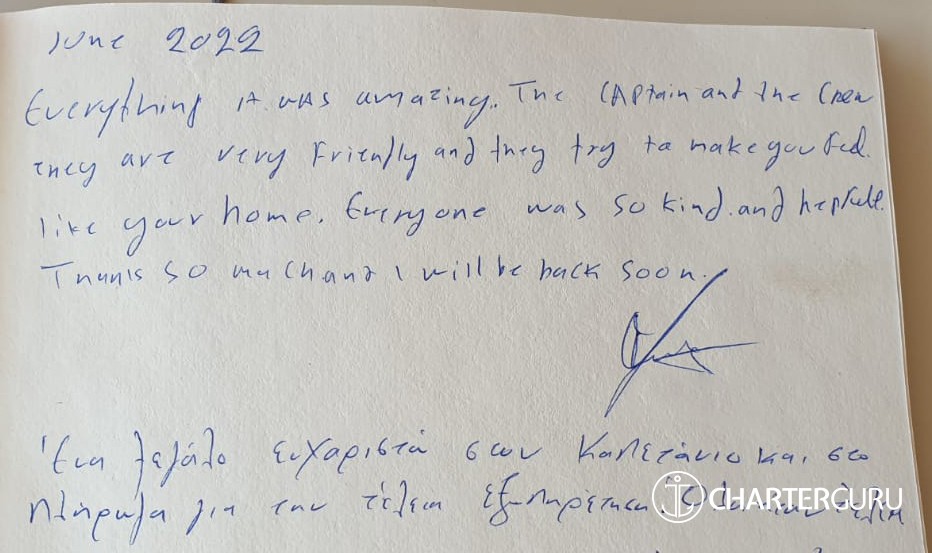 June 2022
Everything it was amazing. The Captain and the Crew
they are very Friendly and they try to make you feel.
like your home. Everyone was so kind. and hepfull.
Thanks so much and I will be back soon.
Ένα μεγάλο ευχαριστώ στων Καπετάνιο και στο
πλήρωμα για την τέλεια εξυπηρέτηση.
CHARTERGURU